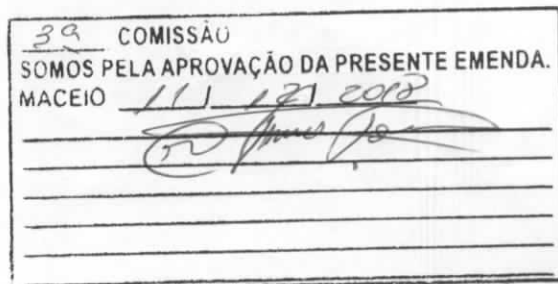 3ª COMISSÃO
SOMOS PELA APROVAÇÃO DA PRESENTE EMENDA.
MACEIO 11 / 12 / 2018